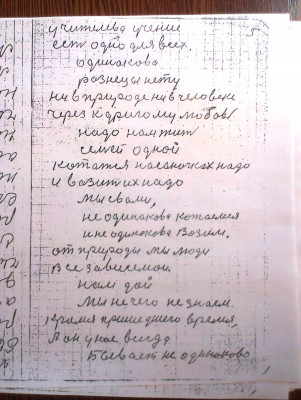 учителва учение
ест одно для всех.
одинакова
разнецы нету
ни в природе ни в человеке
через к другому любовь
надо нам жит
семей одной
кататся на саночках надо
и возит их надо
Мы свами,
не одинакова катаемся
и не одинакова возим.
от природы мы люди
все зависемои.
Нам дай
Мы нечего не знаем.
время пришедшего время,
А он у нас всегда
бывает не одинаково
5